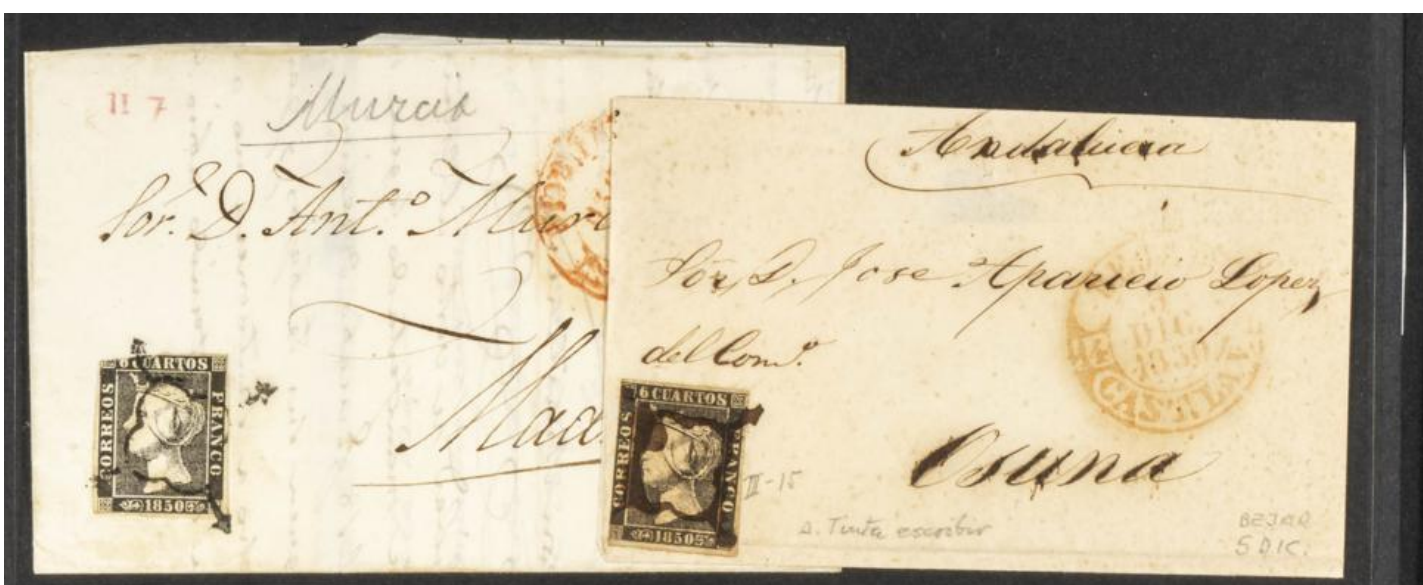 II 7
Murcia
Sor. D. Ant.º
CORREOS
6 CUARTOS
FRANCO
1850
Andalucia
Sor. D. Jose Aparicio Lopez
del Com.º
Osuna
DIC.
1850
CAST. LA V.
6 CUARTOS
CORREOS
FRANCO
1850
II-15
a. Tinta escribir
BEJAR
5 DIC.